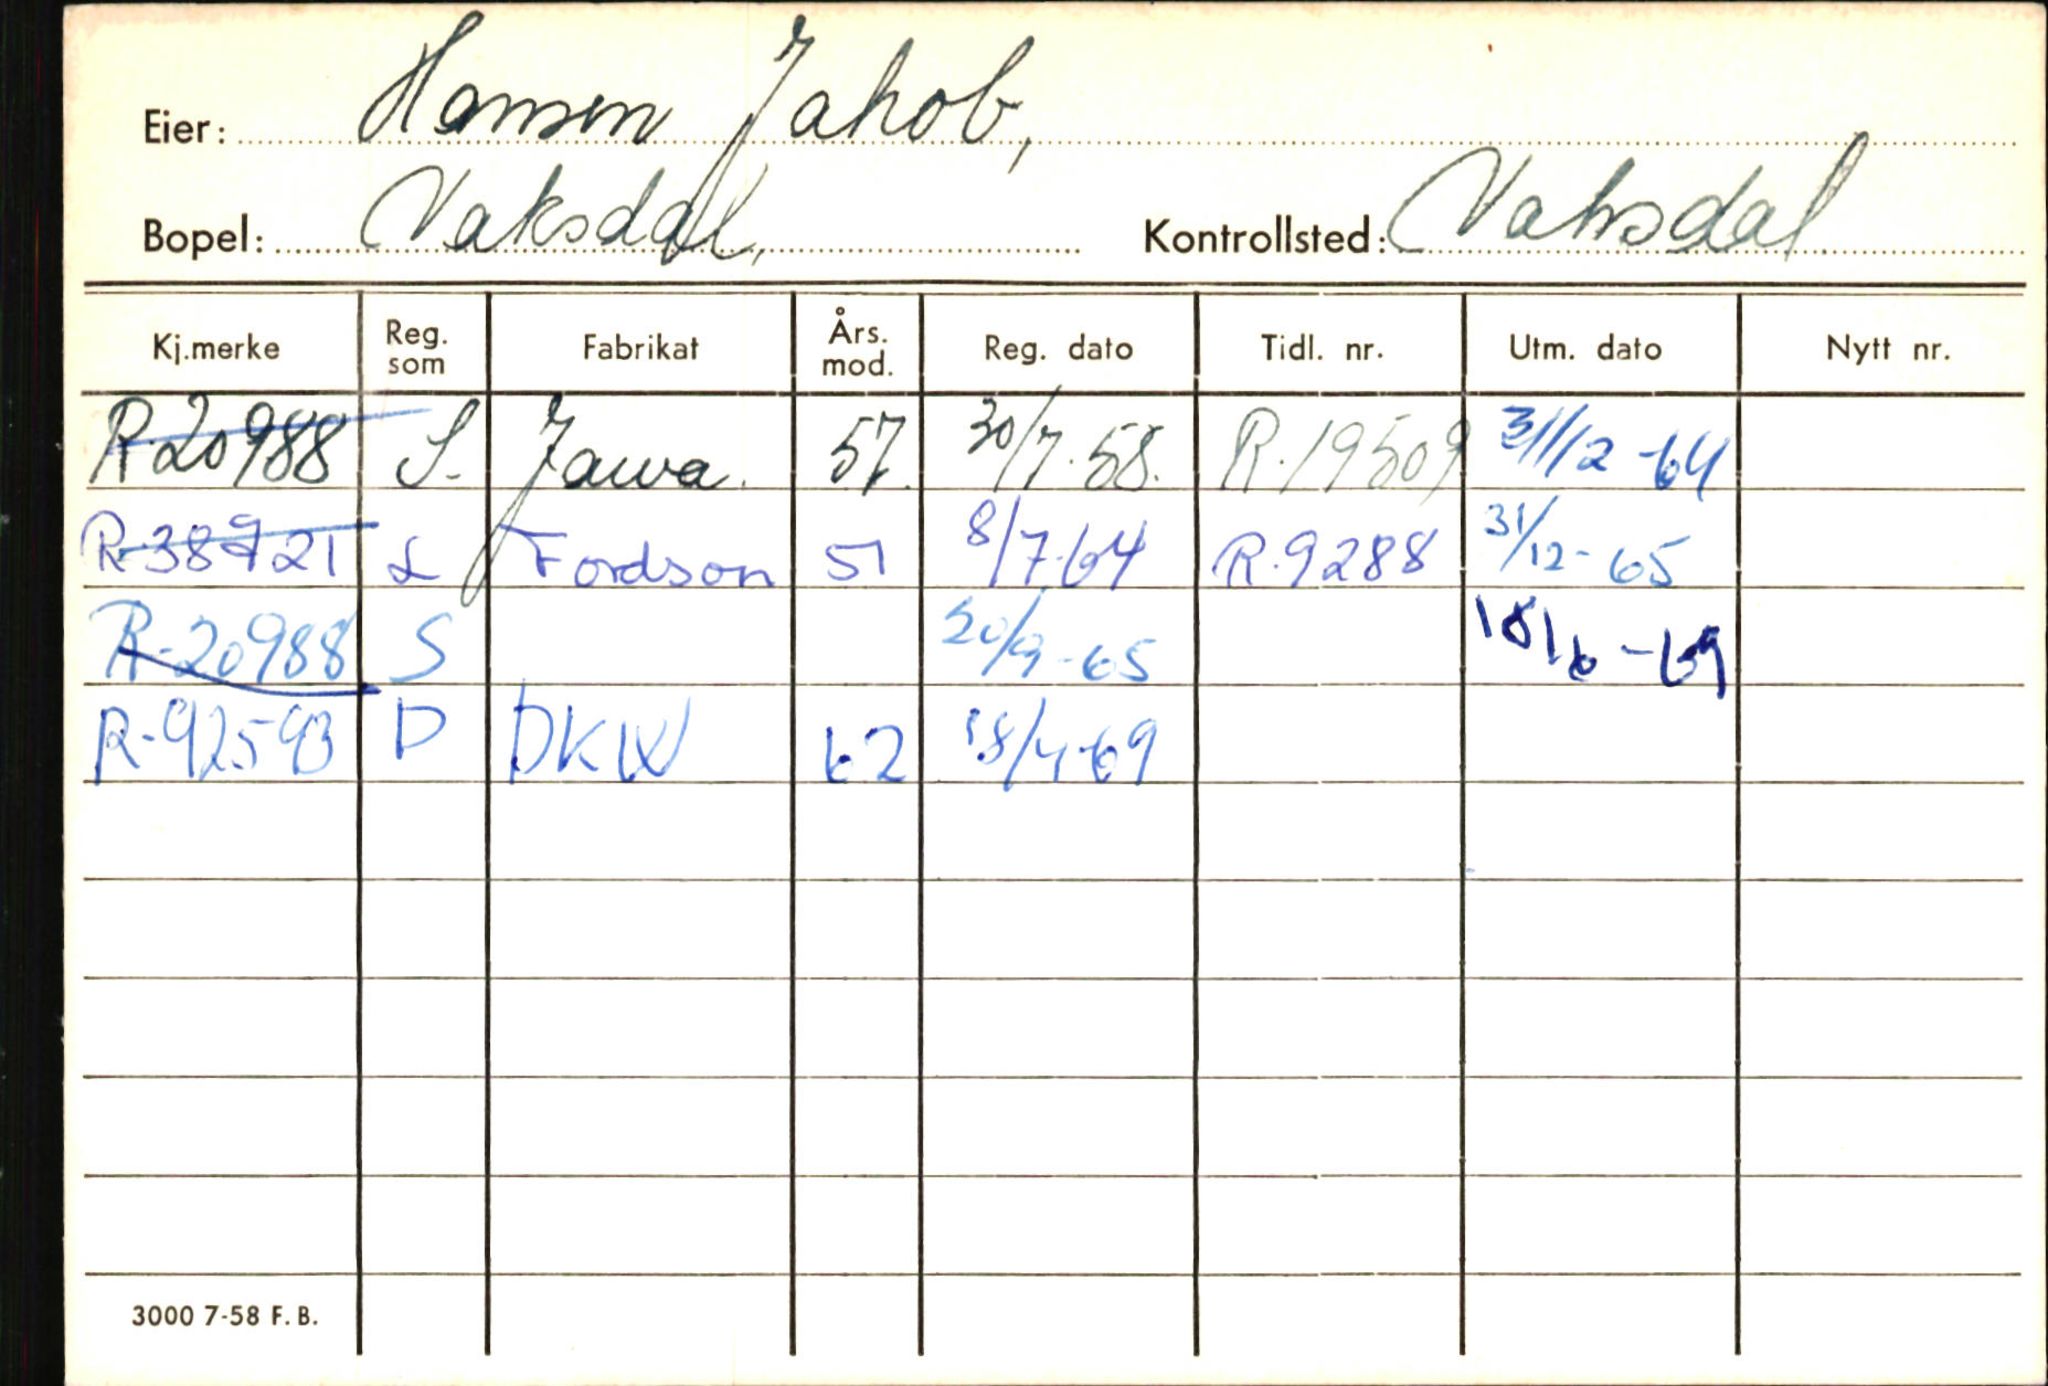 Eier: Hansen Jakob,
Bopel: Vaksdal, Kontrollsted: Vaksdal
Kj.merke Reg. som Fabrikat Års. mod. Reg. dato Tidl. nr. Utm. dato Nytt nr.
R-20988 S. Jawa. 57. 30/7.58. R.19509 31/12-64
R-38921 L Fordson 51 8/7-64 R.9288 31/12-65
R-20988 S 20/9-65 18/6-69
R-92593 D DKW 62 18/4-69
3000 7-58 F. B.